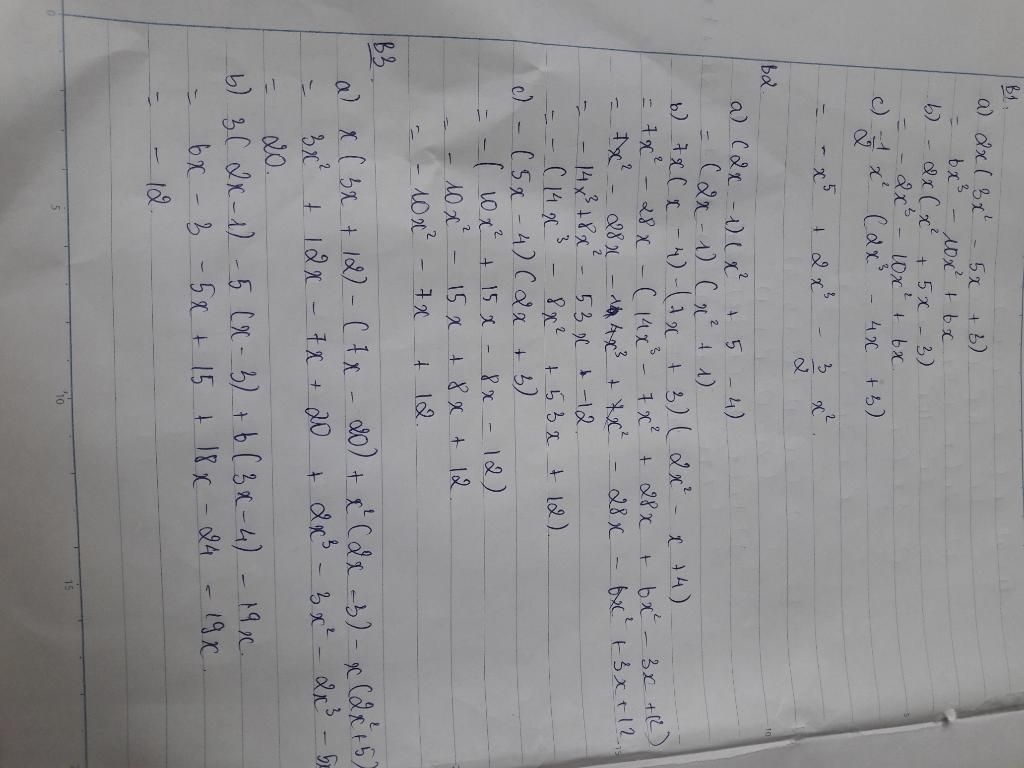 B1.
a) 2x(3x² - 5x + 3)
= 6x³ - 10x² + 6x
b) - 2x(x² + 5x - 3)
= - 2x³ - 10x² + 6x
c) -1/2 x² (2x³ - 4x + 3)
= - x⁵ + 2x³ - 3/2 x².
B2.
a) (2x - 1)(x² + 5 - 4)
= (2x - 1)(x² + 1)
b) 7x(x - 4) - (7x + 3)(2x² - x + 4)
= 7x² - 28x - (14x³ - 7x² + 28x + 6x² - 3x + 12)
= 7x² - 28x - 14x³ + 7x² - 28x - 6x² + 3x + 12
= - 14x³ + 8x² - 53x + -12
= - (14x³ - 8x² + 53x + 12).
c) - (5x - 4)(2x + 3)
= - (10x² + 15x - 8x - 12)
= - 10x² - 15x + 8x + 12
= - 10x² - 7x + 12.
B3.
a) x(3x + 12) - (7x - 20) + x²(2x - 3) - x(2x² + 5)
= 3x² + 12x - 7x + 20 + 2x³ - 3x² - 2x³ - 5x
= 20.
b) 3(2x - 1) - 5(x - 3) + 6(3x - 4) - 19x
= 6x - 3 - 5x + 15 + 18x - 24 - 19x.
= - 12.
0
5
10
15